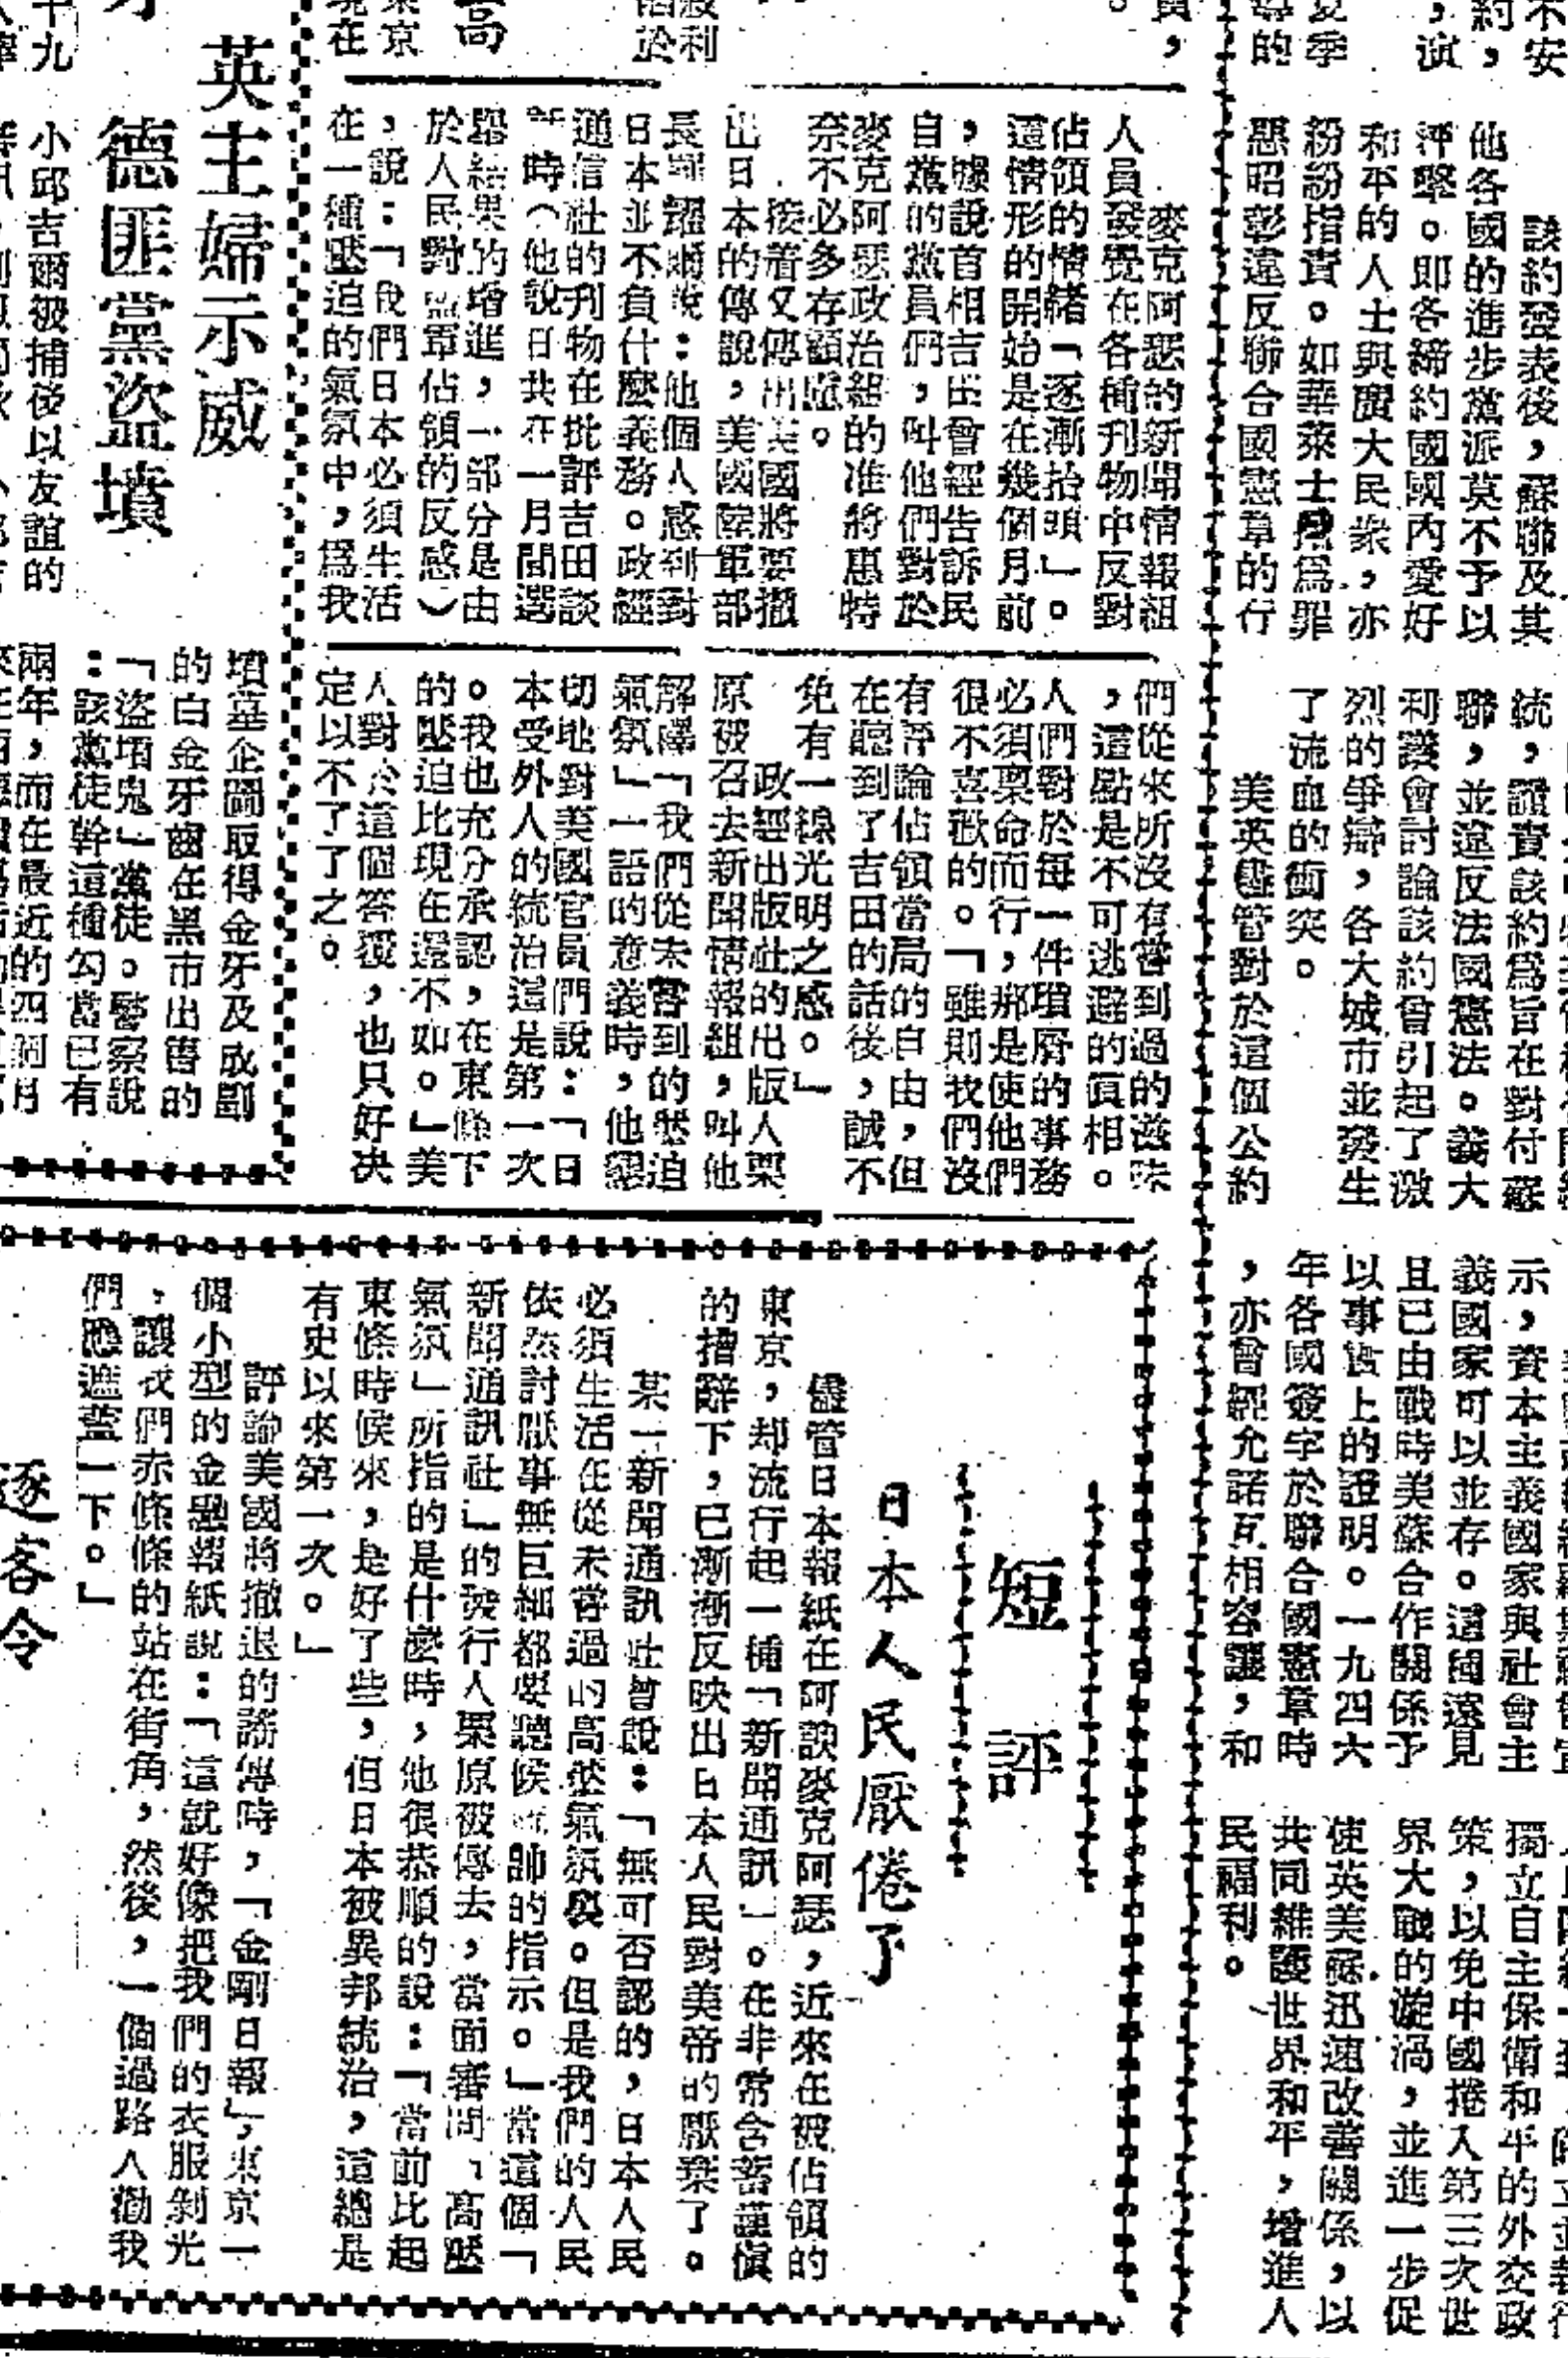 該約發表後，蘇聯及其
他各國的進步黨派莫不予以
抨擊。即各締約國國內愛好
和平的人士與廣大民衆，亦
紛紛指責。如華萊士 爲罪
惡昭彰違反聯合國憲章的行
統，譴責該約爲旨在對付蘇
聯，並違反法國憲法。義大
利議會討論該約曾引起了激
烈的爭辯，各大城市並發生
了流血的衝突。
美英 管對於這個公約
示，資本主義國家與社會主
義國家可以並存。這個遠見
且已由戰時美蘇合作關係予
以事實上的證明。一九四六
年各國簽字於聯合國憲章時
，亦曾經允諾互相容讓，和
獨立自主保衛和平的外交政
策，以免中國捲入第三次世
界大戰的漩渦，並進一步促
使英美蘇迅速改善關係，以
共同維護世界和平，增進人
民福利。
麥克阿瑟的新聞情報組
人員發覺在各種刊物中反對
佔領的情緒「逐漸抬頭」。
這情形的開始是在幾個月前
，據說首相吉田曾經告訴民
自黨的黨員們，叫他們對於
麥克阿瑟政治組的准將惠特
奈不必多存顧慮。
接着又傳出美國將要撤
出日本的傳說，美國陸軍部
長羅耀爾說：他個人感到對
日本並不負什麼義務。政經
通信社的刊物在批評吉田談
話時（他說日共在一月間選
舉結果的增進，一部分是由
於人民對盟軍佔領的反感）
，說：「我們日本必須生活
在一種壓迫的氣氛中，爲我
們從來所沒有嘗到過的滋味
，這點是不可逃避的眞相。
人們對於每一件瑣屑的事務
必須稟命而行，那是使他們
很不喜歡的。「雖則我們沒
有評論佔領當局的自由，但
在聽到了吉田的話後，誠不
免有一線光明之感。」
政經出版社的出版人栗
原被召去新聞情報組，叫他
解釋「我們從未嘗到的壓迫
氣氛」一語的意義時，他懇
切地對美國官員們說：「日
本受外人的統治這是第一次
。我也充分承認，在東條下
的壓迫比現在還不如。」美
人對於這個答覆，也只好決
定以不了了之。
英主婦示威
德匪黨盜墳
小邱吉爾被捕後以友誼的
墳墓企圖取得金牙及成副
的白金牙齒在黑市出售的
「盜墳鬼」黨徒。警察說
：該黨徒幹這種勾當已有
兩年，而在最近的四個月
短評
日本人民厭倦了
儘管日本報紙在阿諛麥克阿瑟，近來在被佔領的
東京，却流行起一種「新聞通訊」。在非常含蓄謹愼
的措辭下，已漸漸反映出日本人民對美帝的厭棄了。
某一新聞通訊社曾說：「無可否認的，日本人民
必須生活在從未嘗過的高壓氣氛 。但是我們的人民
依然討厭事無巨細都要聽候 帥的指示。」當這個「
新聞通訊社」的發行人栗原被傳去，當面審問「高壓
氣氛」所指的是什麼時，他很恭順的說：「當前比起
東條時候來，是好了些，但日本被異邦統治，這總是
有史以來第一次。」
評論美國將撤退的謠傳時，「金剛日報」，東京一
個小型的金融報紙說：「這就好像把我們的衣服剝光
，讓我們赤條條的站在街角，然後，一個過路人勸我
們應遮蓋一下。」
逐客令